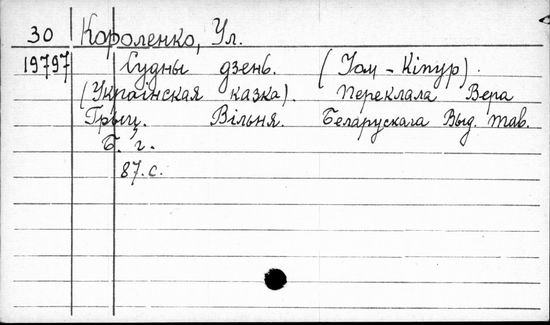 30 Короленко, Ул.
19797 Судны дзень. (Іом-Кіпур).
(Украінская казка). Пераклала Вера
Грыц. Вільня. Беларускага Выд. тав.
Б. г.
87.с.